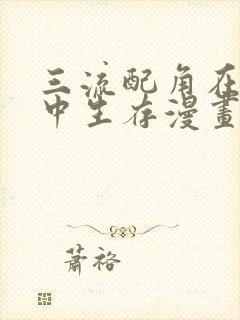 三流配角在
中生存漫畫
蕭裕